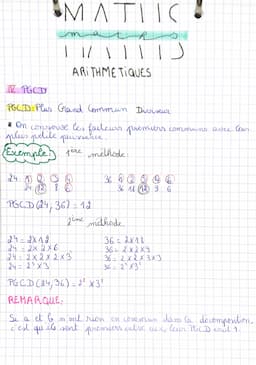 MATHS
maths
ARITHMETIQUES
IV PGCD
PGCD Plus Grand Commun Diviseur
• On conserve les facteurs premiers communs avec leur
plus petite puissance.
Exemple: 1ère méthode:
24: 1 2 3 4 36: 1 2 3 4 6
24 12 8 6 36 18 12 9 6
PGCD(24, 36) = 12
2ème méthode
24 = 2×12 36 = 2×18
24 = 2×2×6 36 = 2×2×9
24 = 2×2×2×3 36 = 2×2×3×3
24 = 2³×3 36 = 2²×3²
PGCD(24,36) = 2² × 3¹
REMARQUE:
Si a et b n'ont rien en commun dans la décomposition,
c'est qu'ils sont premiers entre eux leur PGCD vaut 1.